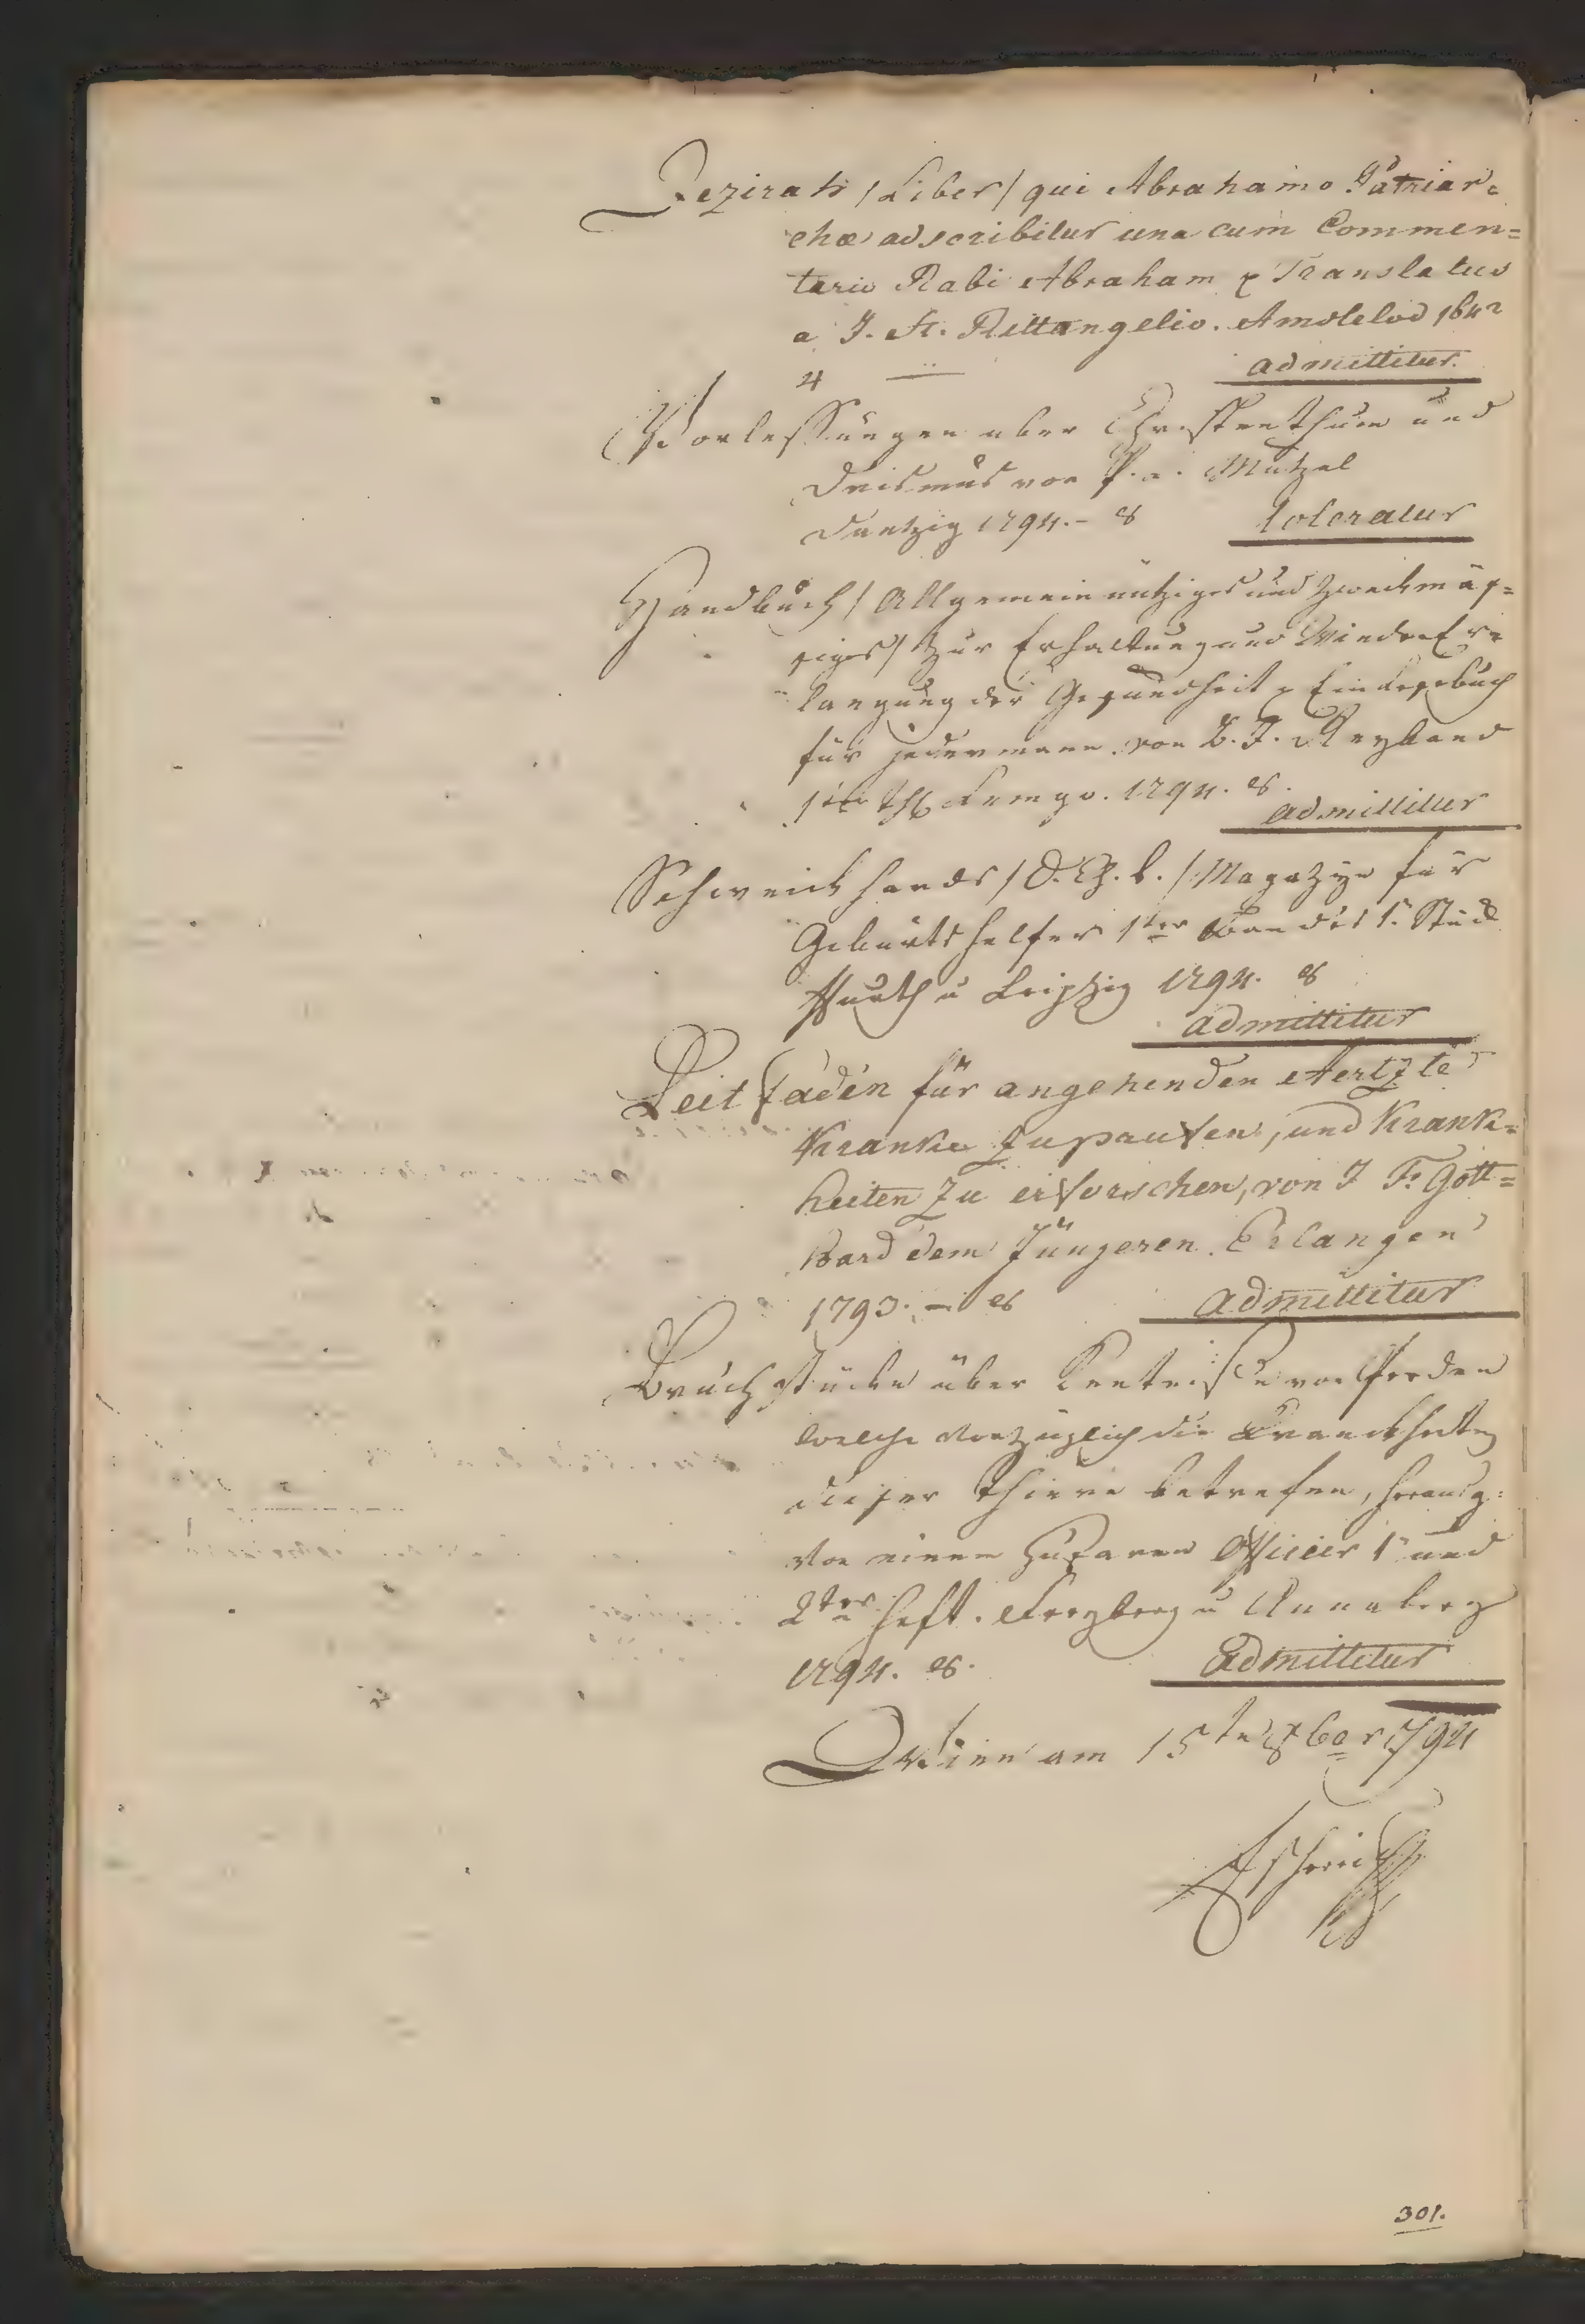 Jezirah / Liber / qui Abrahamo Patriar=
chæ adscribitur una cum Commen=
tario Rabi Abraham & Translatus
a J. St. Rittangelio. Amstelod 1642
4 — admittitur.
Vorlesungen uber Christenthum und
Deismus von P. Mutzel
Dantzig 1794. – 8 toleratur
Handbuch / Allgemein nütziges und zweckmäs=
siges / zur Erhaltung und WiederEr
langung der Gesundheit & Ein Lesebuch
für jedermann von
1ter Th Lemgo. 1794. 8. admittitur
Schweickhards / C. L. / Magazin für
Geburtshelfer 1ter Bandes 1. Stück
Frankfurth u Leipzig 1794. 8
admittitur
Leitfaden für angehenden Aertzte
Kranke zu prüfen, und Krank=
heiten zu erforschen, von J F. Gott=
hard dem Jüngeren. Erlangen
1793. – 8 admittitur
Bruchstücke über Kentnisse von Pferden
welche vorzüglich die Kranckheiten
dieser Thiere betrefen, herausg:
von einem Husaren Officier 1. und
2ter Heft. Freyberg u Annaberg
1794. 8. Admittitur
Wien am 15ten 8ber 1794
Escherich
301.